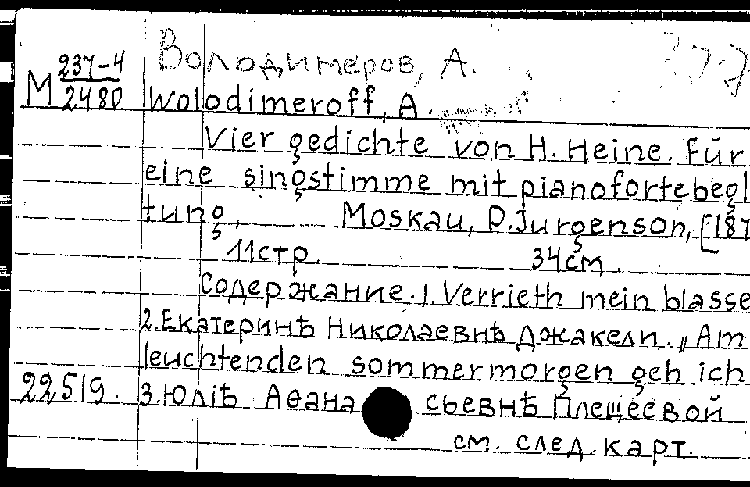 Володимеров, А.
М 237-4/2480
Wolodimeroff, A.
Vier gedichte von H. Heine. Für
eine singstimme mit pianofortebegl
tung, Moskau, P. Jurgenson, [187
11стр. 34см.
Содержание. 1. Verrieth mein blasse
2. Екатеринѣ Николаевнѣ Джакели. „Am
leuchtenden sommermorgen geh ich
22519. 3. Юліѣ Аѳана сьевнѣ Плещеевой
см. след. карт.